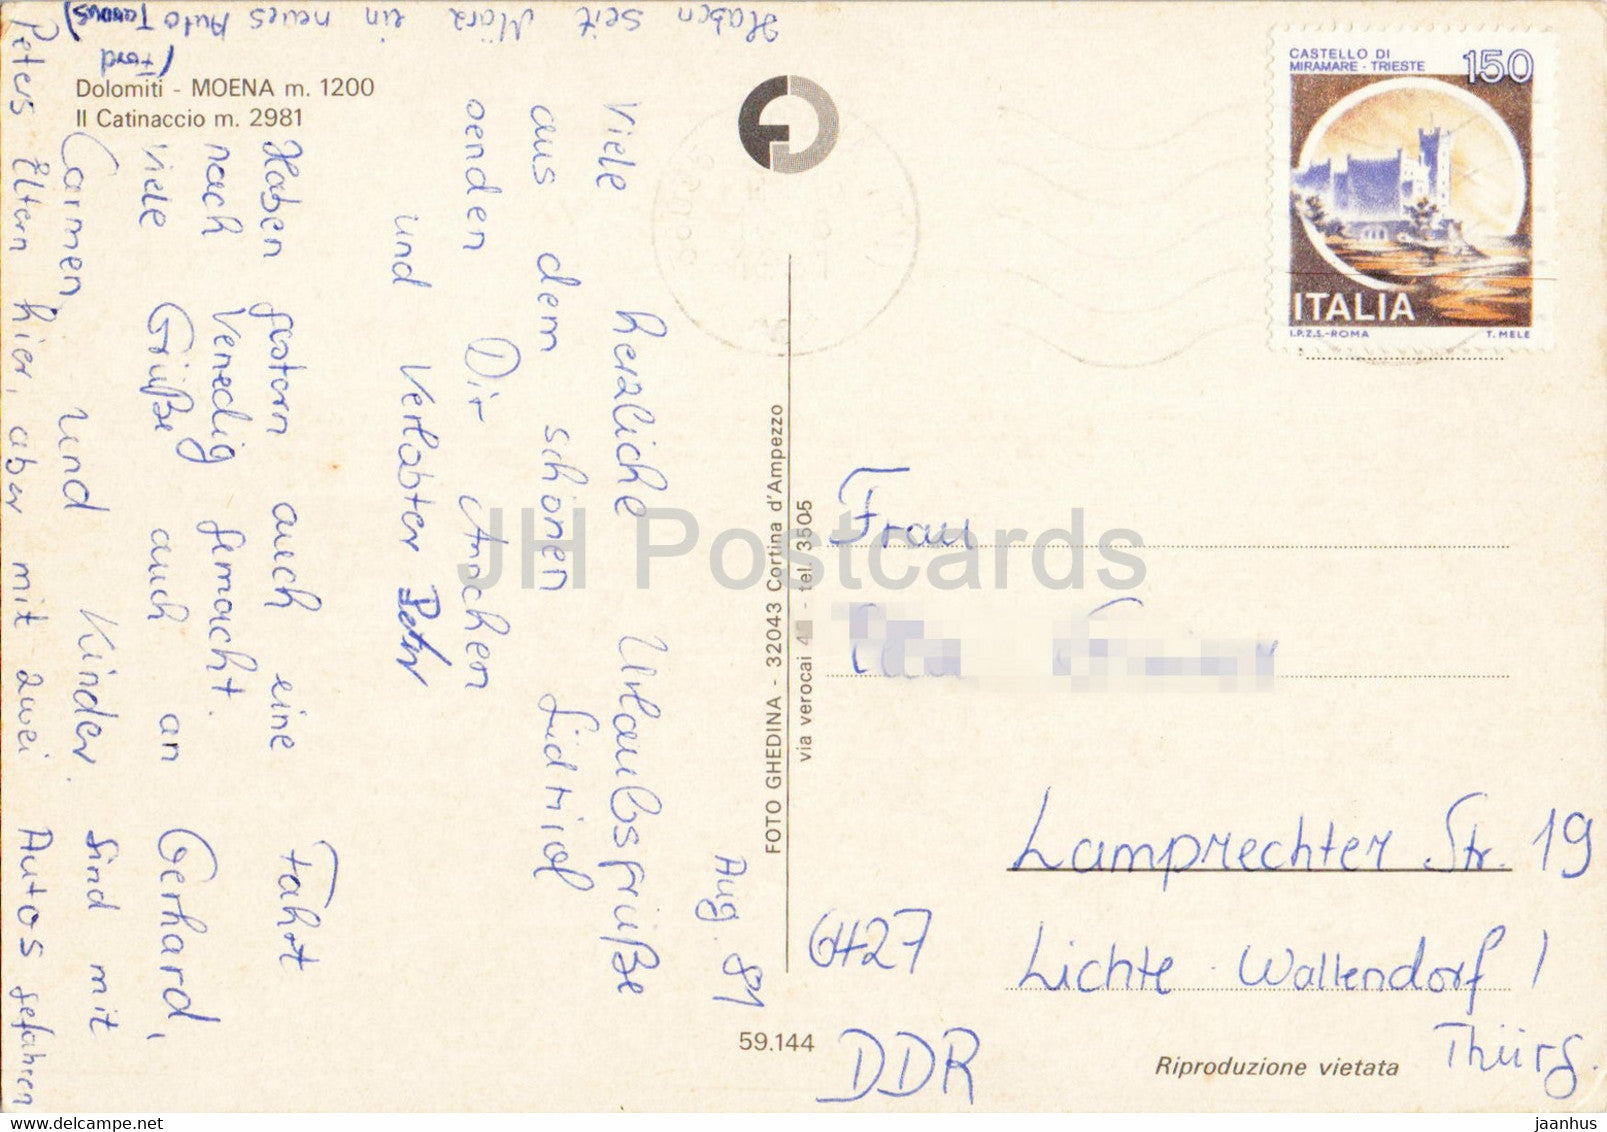 Haben seit März ein neues Auto
(Ford Taunus)
Dolomiti - MOENA m. 1200
Il Catinaccio m. 2981
Aug. 81
Viele herzliche Urlaubsgrüße
aus dem schönen Südtirol
senden Dir Annchen
und Verlobter Peter
Haben gestern auch eine Fahrt
nach Venedig gemacht.
Viele Grüße auch an Gerhard,
Carmen und Kinder. Sind mit
Peters Eltern hier, aber mit zwei Autos gefahren
FOTO GHEDINA - 32043 Cortina d'Ampezzo
via verocai - tel. 3505
59.144
CASTELLO DI
MIRAMARE - TRIESTE
150
ITALIA
I.P.Z.S.-ROMA T. MELE
Frau
Lamprechter Str. 19
6427 Lichte Wallendorf 1
DDR Thürg.
Riproduzione vietata
JH Postcards
delcampe.net
jaanhus